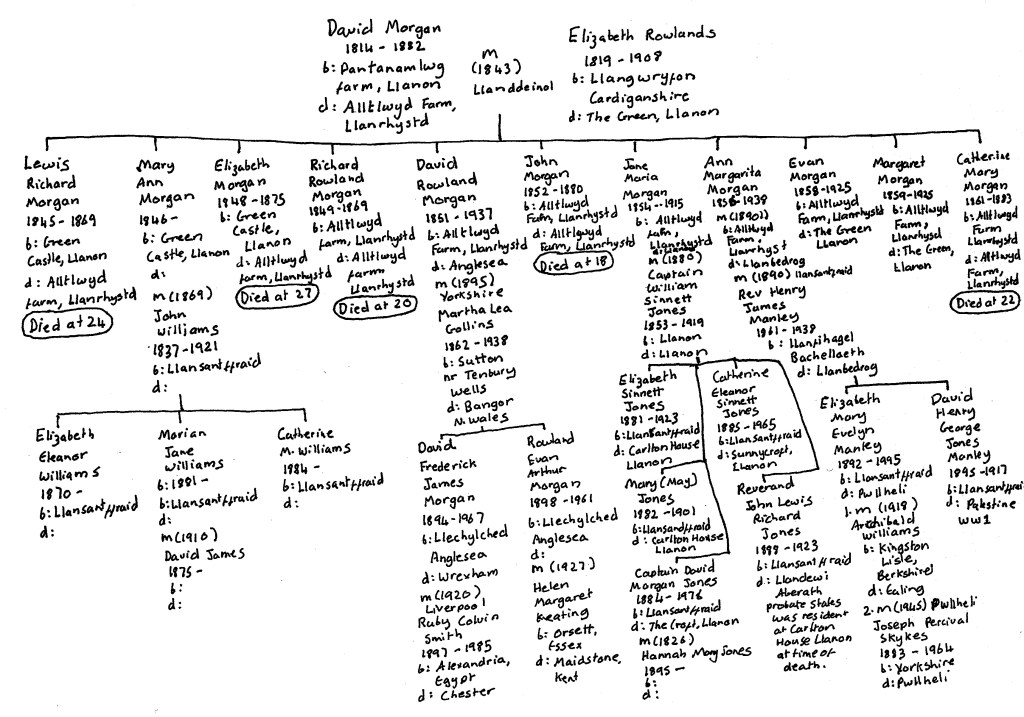 David Morgan
1814 - 1882
b: Pantanamlwg
farm, Llanon
d: Alltlwyd Farm,
Llanrhystd
m
(1843)
Llanddeinol
Elizabeth Rowlands
1819 - 1908
b: Llangwryfon
Cardiganshire
d: The Green, Llanon
Lewis
Richard
Morgan
1845 - 1869
b: Green
Castle, Llanon
d: Alltlwyd
farm, Llanrhystd
Died at 24
Mary
Ann
Morgan
1846 -
b: Green
Castle, Llanon
d:
m (1869)
John
Williams
1837 - 1921
b: Llansantffraid
d:
Elizabeth
Morgan
1848 - 1875
b: Green
Castle,
Llanon
d: Alltlwyd
farm, Llanrhystd
Died at 27
Richard
Rowland
Morgan
1849 - 1869
b: Alltlwyd
farm, Llanrhystd
d: Alltlwyd
farm
Llanrhystd
Died at 20
David
Rowland
Morgan
1851 - 1937
b: Alltlwyd
Farm, Llanrhystd
d: Anglesea
m (1895)
Yorkshire
Martha Lea
Collins
1862 - 1938
b: Sutton
nr Tenbury
Wells
d: Bangor
N. Wales
John
Morgan
1852 - 1880
b: Alltlwyd
Farm, Llanrhystd
d: Alltlwyd
Farm, Llanrhystd
Died at 18
Jane
Maria
Morgan
1854 - 1915
b: Alltlwyd
farm,
Llanrhystd
m (1880)
Captain
William
Sinnett
Jones
1853 - 1919
b: Llanon
d: Llanon
Ann
Margarita
Morgan
1856 - 1938
m (1890)
b: Alltlwyd
Farm,
Llanrhyst
d: Llanbedrog
m (1890) Llansantffraid
Rev Henry
James
Manley
1861 - 1938
b: Llanfihagel
Bachellaeth
d: Llanbedrog
Evan
Morgan
1858 - 1925
b: Alltlwyd
Farm, Llanrhystd
d: The Green
Llanon
Margaret
Morgan
1859 - 1925
b: Alltlwyd
Farm,
Llanrhysd
d: The Green,
Llanon
Catherine
Mary
Morgan
1861 - 1883
b: Alltlwyd
Farm
Llanrhystd
d: Alltlwyd
Farm,
Llanrhystd
Died at 22
Elizabeth
Eleanor
Williams
1870 -
b: Llansantffraid
d:
Marian
Jane
Williams
b: 1881 -
b: Llansantffraid
d:
m (1910)
David James
1875 -
b:
d:
Catherine
M. Williams
1884 -
b: Llansantffraid
d:
David
Frederick
James
Morgan
1894 - 1967
b: Llechylched
Anglesea
d: Wrexham
m (1920)
Liverpool
Ruby Colvin
Smith
1897 - 1985
b: Alexandria,
Egypt
d: Chester
Rowland
Evan
Arthur
Morgan
1898 - 1961
b: Llechylched
Anglesea
d:
m (1927)
Helen
Margaret
Keating
b: Orsett,
Essex
d: Maidstone,
Kent
Elizabeth
Sinnett
Jones
1881 - 1923
b: Llansantffraid
d: Carlton House
Llanon
Mary (May)
Jones
1882 - 1901
b: Llansandffraid
d: Carlton House
Llanon
Captain David
Morgan Jones
1884 - 1976
b: Llansantffraid
d: The Croft, Llanon
m (1826)
Hannah Mary Jones
1895 -
b:
d:
Catherine
Eleanor
Sinnett
Jones
1885 - 1965
b: Llansantffraid
d: Sunnycroft,
Llanon
Reverand
John Lewis
Richard
Jones
1888 - 1923
b: Llansantffraid
d: Llandewi
Aberath
probate states
was resident
at Carlton
House Llanon
at time of
death.
Elizabeth
Mary
Evelyn
Manley
1892 - 1995
b: Llansantffraid
d: Pwllheli
1. m (1918)
Archibald
Williams
b: Kingston
Lisle,
Berkshire
d: Ealing
2. m (1945) Pwllheli
Joseph Percival
Skykes
1883 - 1964
b: Yorkshire
d: Pwllheli
David
Henry
George
Jones
Manley
1895 - 1917
b: Llansantffraid
d: Palestine
WW1